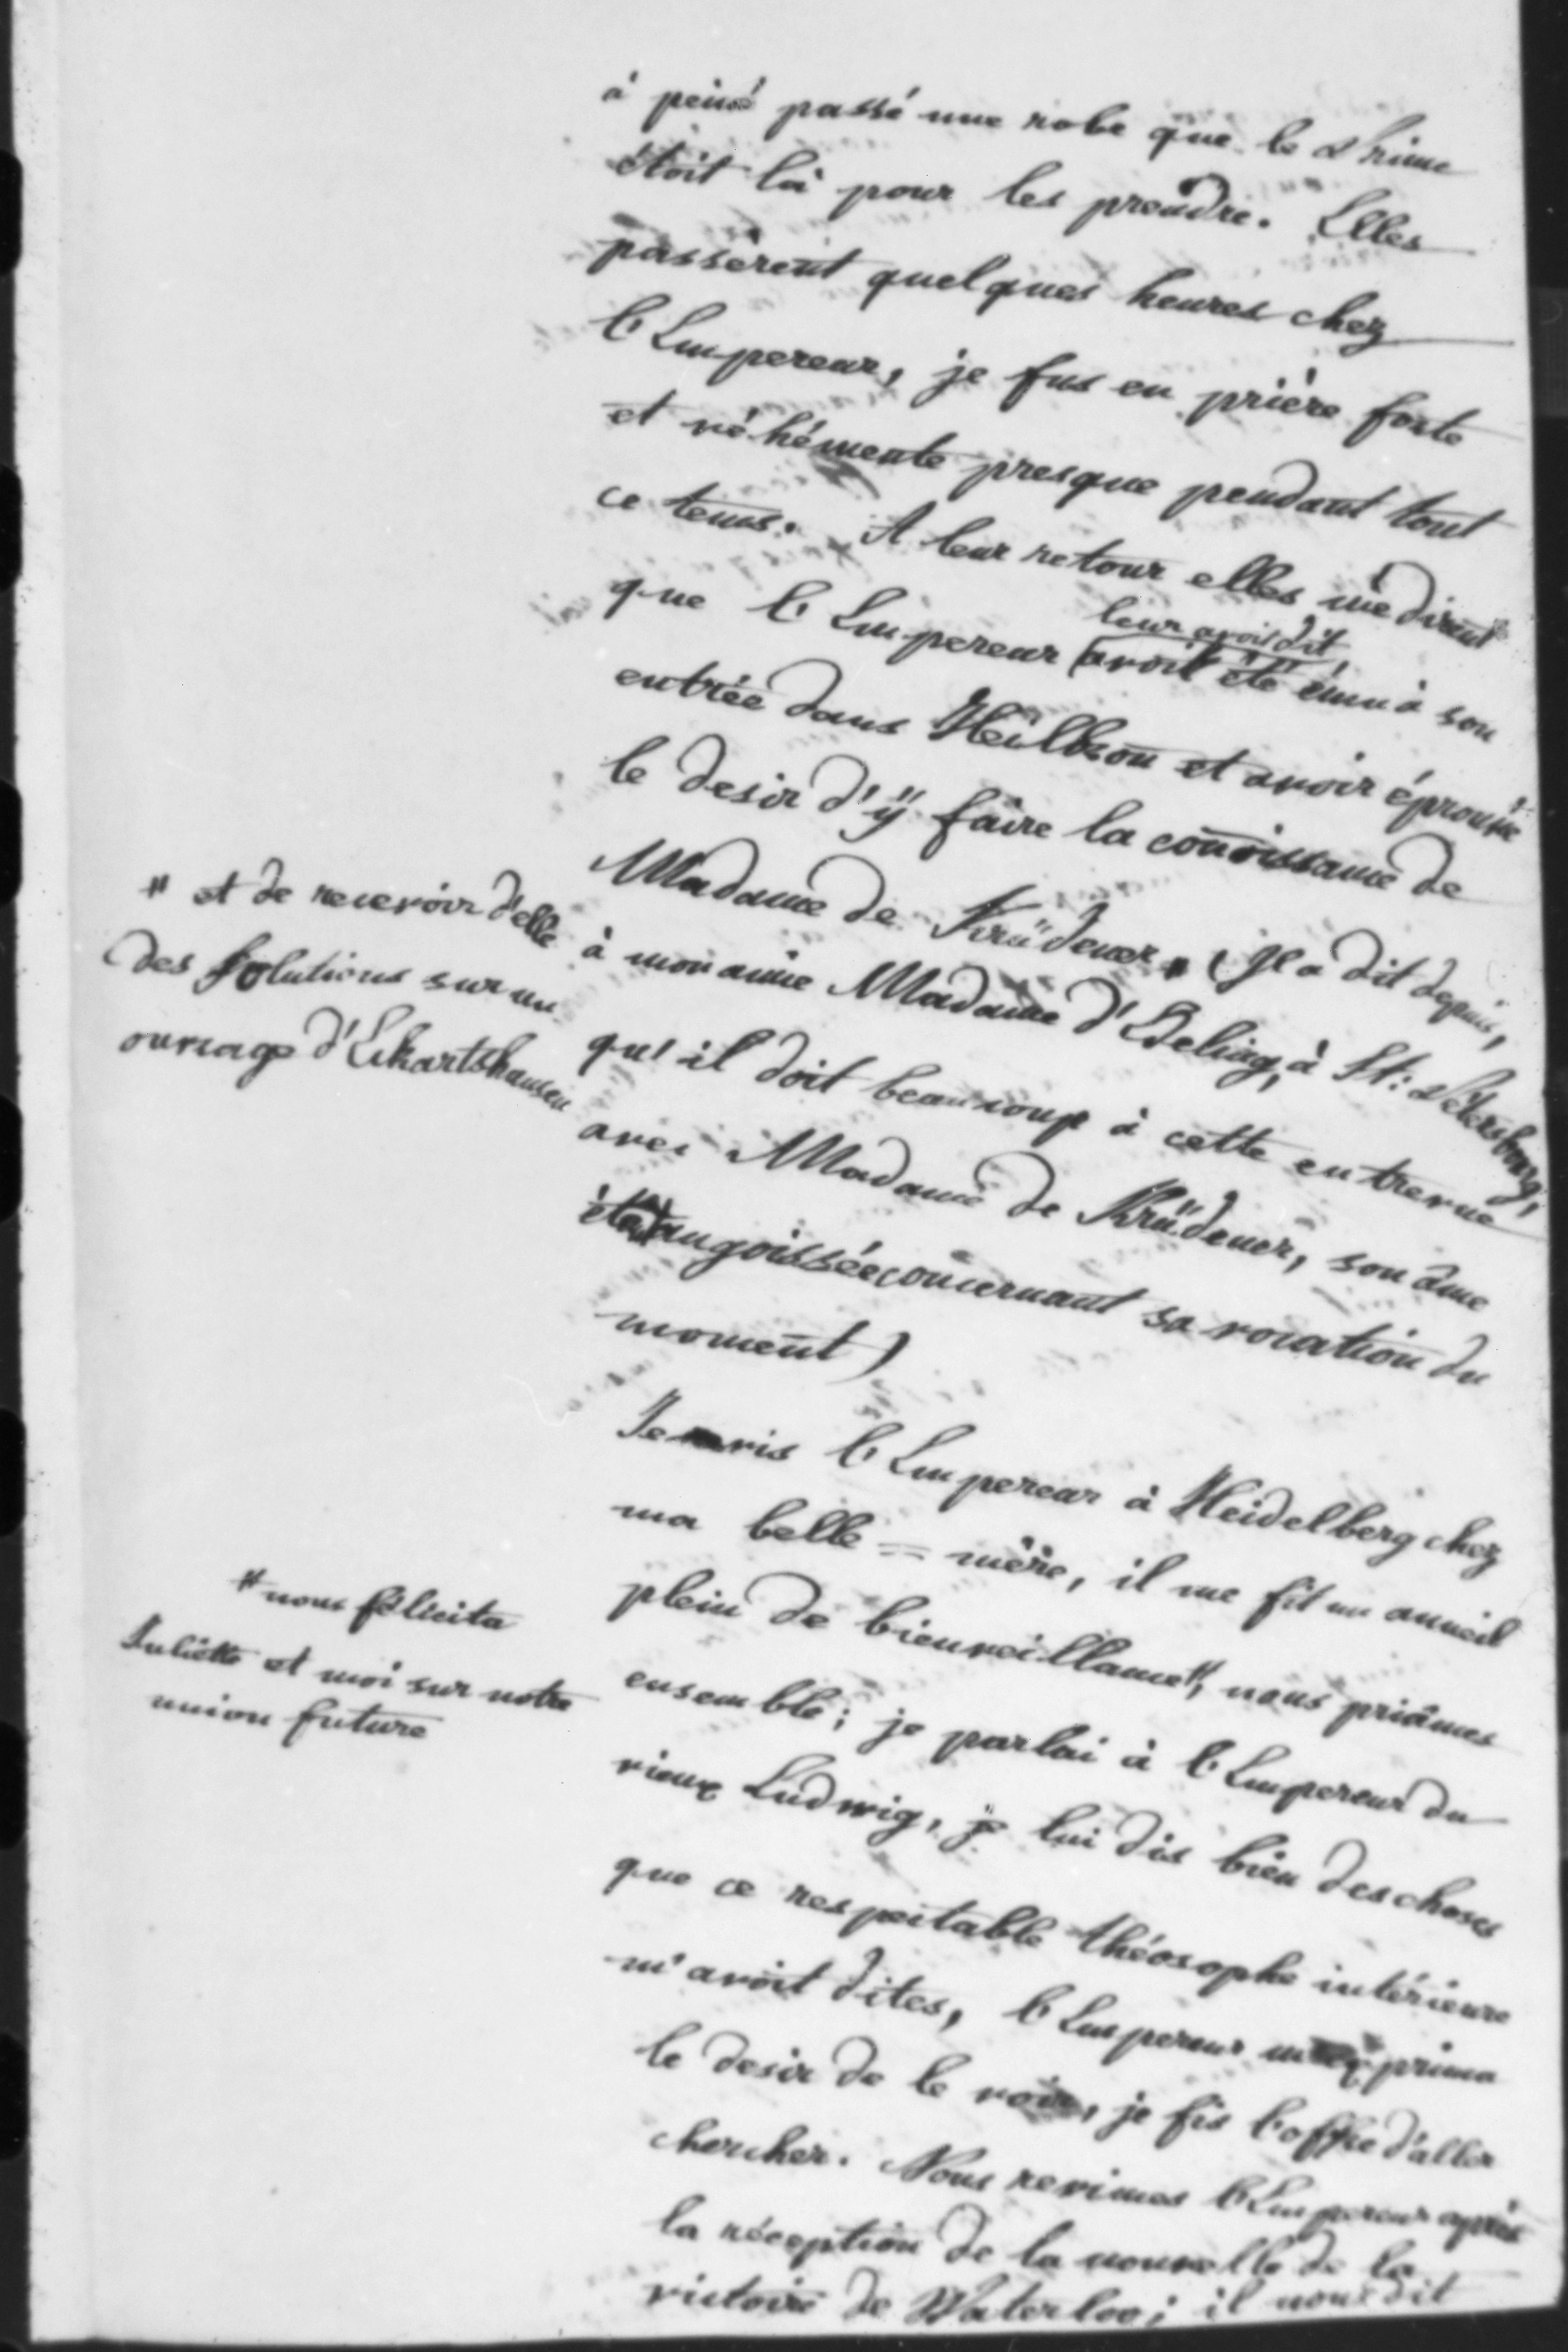 à peine passé une robe que le Prince
étoit là pour les prendre. Elles
passèrent quelques heures chez
l'Empereur, je fus en prière forte
et véhémente presque pendant tout
ce tems. A leur retour elles me dirent
leur avoit dit
que l'Empereur avoit été ému à son
entrée dans Heilbron et avoir éprouvé
le desir d'ÿ faire la connoissance de
Madame de Krüdener, " (Il a dit depuis,
" et de recevoir d'elle
des solutions sur un
ouvrage d'Ekartshausen
à mon amie Madame d'Edeling, à St: Pétersbourg,
qu'il doit beaucoup à cette entrevue
avec Madame de Krüdener, son âme
étoit angoissée concernant sa vocation du
moment)
Je vis l'Empereur à Heidelberg chez
ma belle = mère, il me fit un accueil
plein de bienveillance ", nous priâmes
" nous félicita
Juliette et moi sur notre
union future
ensemble; je parlai à l'Empereur du
vieux Ludwig, je lui dis bien des choses
que ce respectable théosophe intérieure
m'avoit dites, l'Empereur m'exprima
le desir de le voir, je fis l'offre d'aller
chercher. Nous revimes l'Empereur après
la réception de la nouvelle de la
victoire de Waterloo; il nous dit